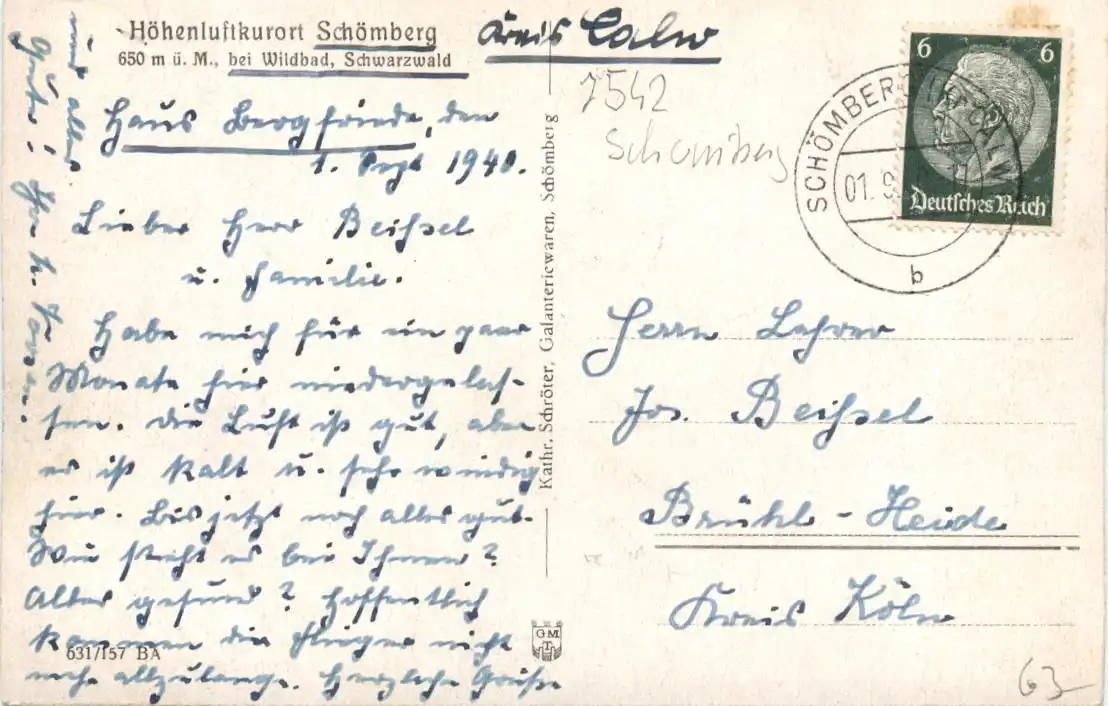 Höhenluftkurort Schömberg
650 m ü. M., bei Wildbad, Schwarzwald
Kreis Calw
Haus Bergfriede, den
1. Sept 1940.
Lieber Herr Beißel
u. Familie.
Habe mich für ein paar
Monate hier niedergelas-
sen. Die Luft ist gut, aber
es ist kalt u. sehr windig
hier. Bis jetzt noch alles gut.
Wie steht es bei Ihnen?
Alles gesund? Hoffentlich
kommen die Flieger nicht
mehr allzulange. Herzliche Grüße
und alles
Gute! Ihr
631/157 BA
Kathr. Schröter, Galanteriewaren, Schömberg
GMT
7542
Schömberg
SCHÖMBERG
CALW
01. 9.
b
6 6
Deutsches Reich
Herrn Lehrer
Jos. Beißel
Brühl-Heide
Kreis Köln
63